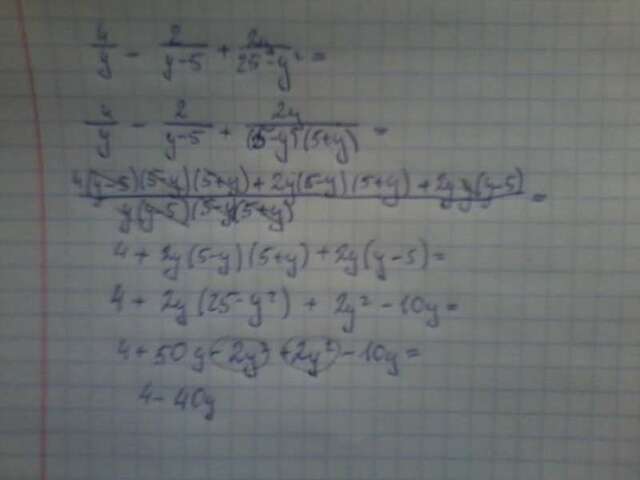 4/y - 2/(y-5) + 2y/(25-y²) =
4/y - 2/(y-5) + 2y/((5-y)(5+y)) =
(4(y-5)(5-y)(5+y) + 2y(5-y)(5+y) + 2y y(y-5))/(y(y-5)(5-y)(5+y)) =
4 + 2y(5-y)(5+y) + 2y(y-5) =
4 + 2y(25-y²) + 2y² - 10y =
4 + 50y - 2y³ + 2y² - 10y =
4 - 40y